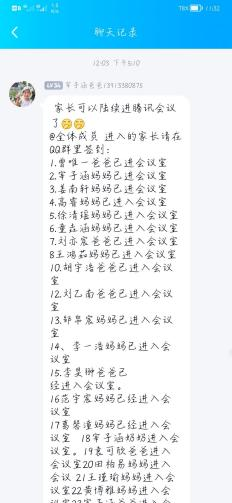 78% 11:32
聊天记录
12-03 下午5:10
LV34 军子涵爸爸13913380875
家长可以陆续进腾讯会议
了
@全体成员 进入的家长请在
QQ群里签到:
1.曾唯一爸爸已进会议室
2.军子涵妈妈已进会议室
3.姜南轩妈妈已进会议室
4.高睿妈妈已进会议室
5.徐清瑶妈妈已进会议室
6.董淼涵妈妈已进会议室
7.刘亦宸爸爸已进会议室
8王鸿茹妈妈已进会议室
10.胡宇浩爸爸已进入会议
室
12.刘乙南爸爸已进入会议
室
13.邹帛宏妈妈已进入会议
室
14、李一浩妈妈已进入会
议室
15.李昊翀爸爸已
经进入会议室。
16范宇宸妈妈已经进入会
议室
17葛馨潼妈妈已经进入会
议室 18军子涵奶奶进入会
议室。19袁可欣爸爸进入
会议室20田柏易妈妈进入
会议室 21王瑾瑜妈妈进入
会议室22黄博雅妈妈进入